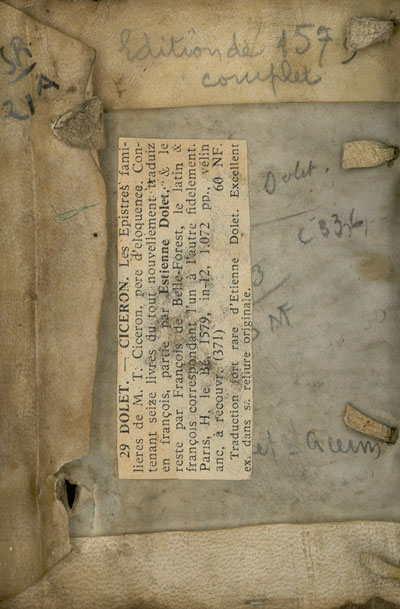 Edition de 157
complet
21 A
29 DOLET. — CICERON. Les Epistres fami-
lieres de M. T. Ciceron, pere d'eloquence. Con-
tenant seize livres du tout nouvellement traduiz
en françois, partie par Estienne Dolet, & le
reste par François de Belle-Forest, le latin &
françois correspondant l'un à l'autre fidelement.
Paris, H. le Bé, 1579, in-12, 1.072 pp., vélin
anc, à recouvr. (371) 60 NF.
Traduction fort rare d'Etienne Dolet. Excellent
ex. dans sa reliure originale.
Dolet.